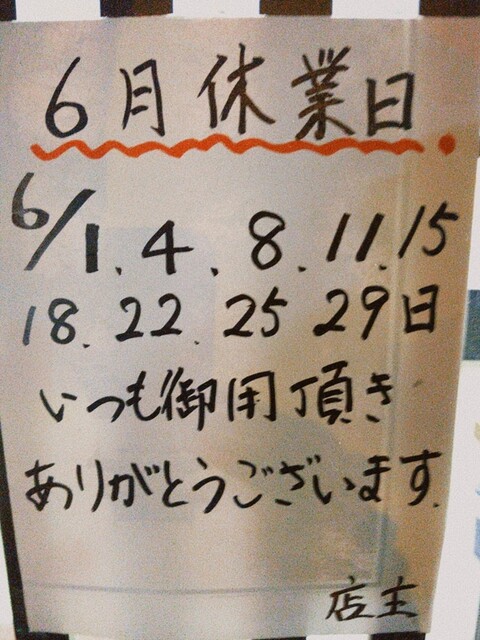 6月休業日.
6/1.4.8.11.15
18.22.25 29日
いつも御用頂き
ありがとうございます.
店主